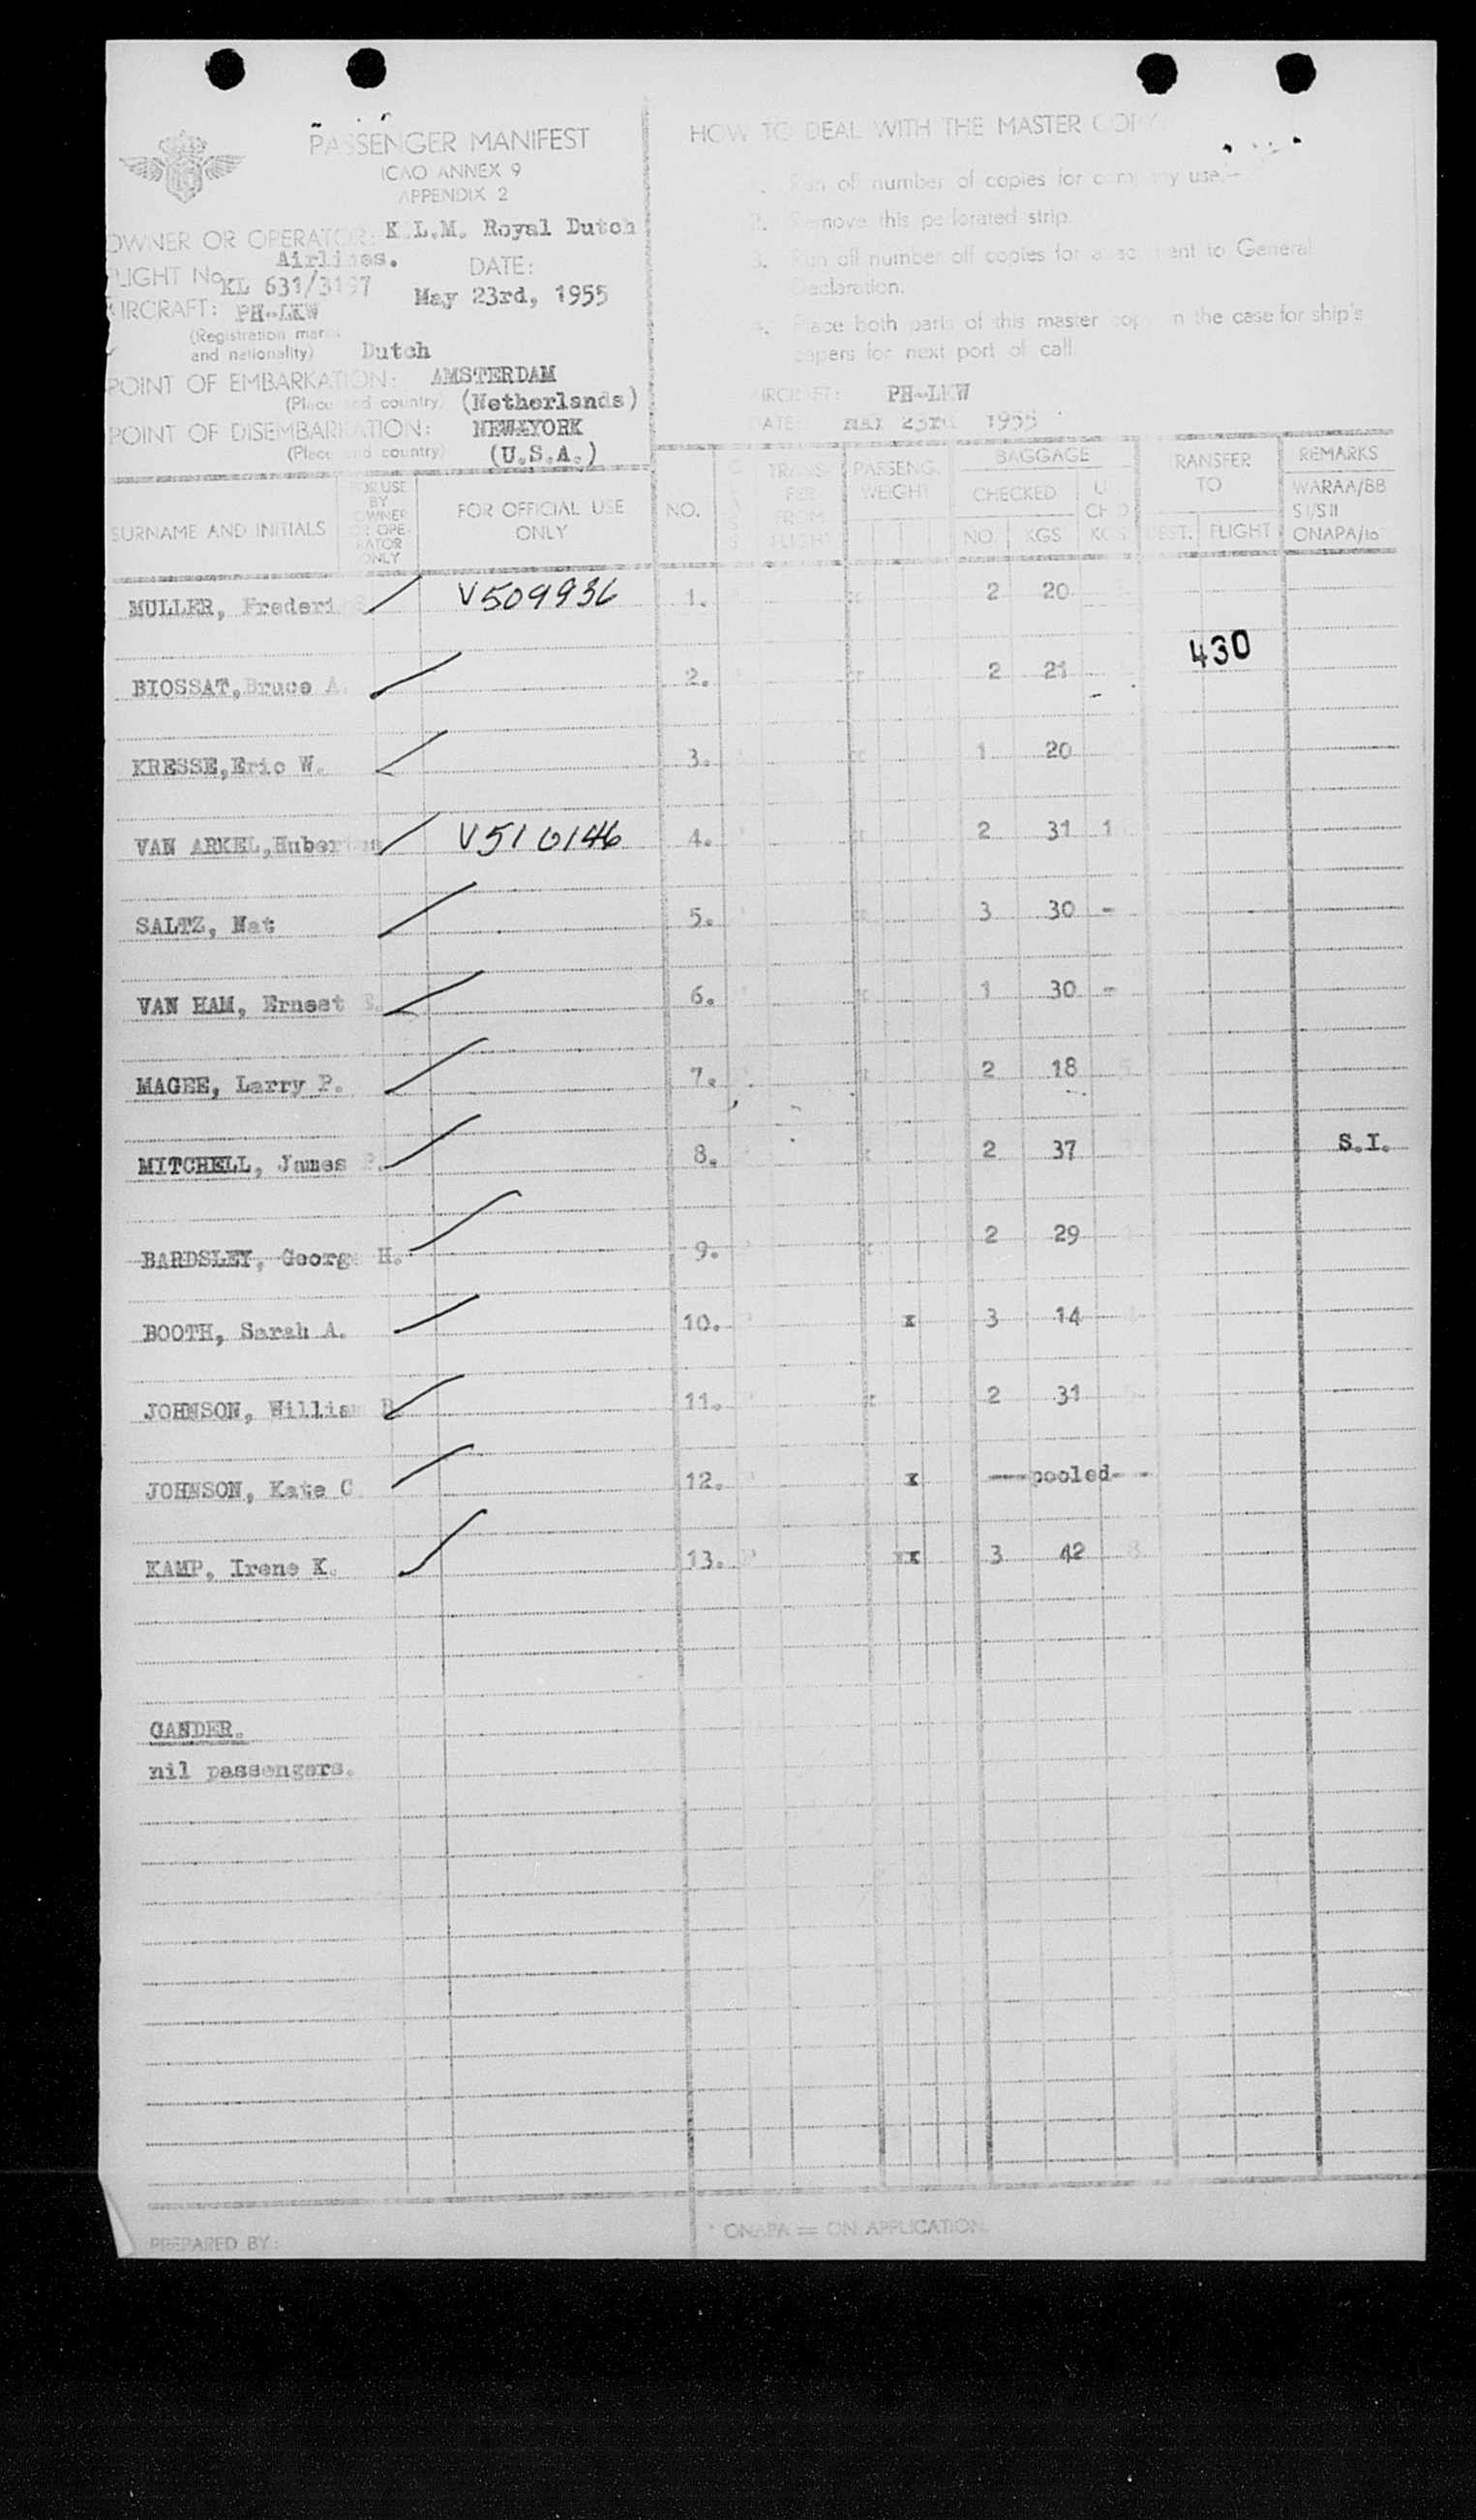 PASSENGER MANIFEST
ICAO ANNEX 9
APPENDIX 2
OWNER OR OPERATOR: K.L.M. Royal Dutch
Airlines.
FLIGHT No. KL 631/3197
DATE:
May 23rd, 1955
AIRCRAFT: PH-LKW
(Registration marks
and nationality) Dutch
POINT OF EMBARKATION: AMSTERDAM
(Place and country) (Netherlands)
POINT OF DISEMBARKATION: NEW YORK
(Place and country) (U.S.A.)
HOW TO DEAL WITH THE MASTER COPY
1. Run off number of copies for company use.
2. Remove this perforated strip.
3. Run off number off copies for attachment to General
Declaration.
4. Place both parts of this master copy in the case for ship's
papers for next port of call.
AIRCRAFT: PH-LKW
DATE: MAY 23rd 1955
SURNAME AND INITIALS
FOR USE BY OWNER OR OPERATOR ONLY
FOR OFFICIAL USE ONLY
NO.
CLASS
TRANSFER FROM FLIGHT
PASSENG. WEIGHT
BAGGAGE
CHECKED
NO. KGS
KGS
TRANSFER TO
DEST. FLIGHT
REMARKS
WARAA/BB
SI/SII
ONAPA/10
MULLER, Frederi V509936 1. 2 20
430
BIOSSAT, Bruce A. 2. 2 21
KRESSE, Eric W. 3. 1 20
VAN ARKEL, Hubertus V510146 4. 2 31 1
SALTZ, Nat 5. 3 30 -
VAN HAM, Ernest 6. 1 30 -
MAGEE, Larry P. 7. 2 18
MITCHELL, James P. 8. 2 37 S.I.
BARDSLEY, George H. 9. 2 29
BOOTH, Sarah A. 10. x 3 14
JOHNSON, William 11. 2 31
JOHNSON, Kate C 12. x ---pooled- -
KAMP, Irene K. 13. xx 3 42 8
GANDER.
nil passengers.
PREPARED BY:
* ONAPA = ON APPLICATION.